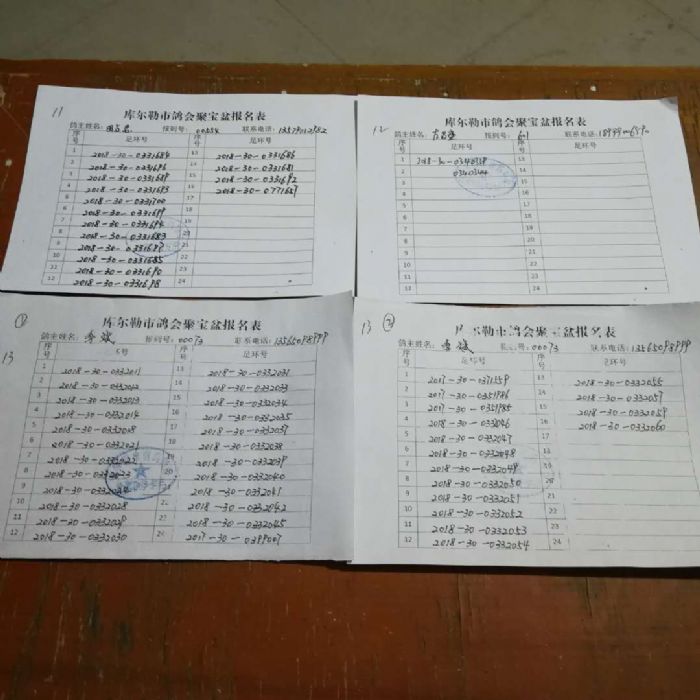 11
库尔勒市鸽会聚宝盆报名表
鸽主姓名: 接到号: 00554 联系电话: 13579012982
序号 足环号 序号 足环号
1 2018-30-0331684 13 2018-30-0331686
2 2018-30-0331696 14 2018-30-0331681
3 2018-30-0331689 15 2018-30-0331692
4 2018-30-0331693 16 2018-30-0771687
5 2018-30-0331700 17
6 2018-30-0331699 18
7 2018-30-0331694 19
8 2018-30-0331683 20
9 2018-30-0331697 21
10 2018-30-0331685 22
11 2018-30-0331690 23
12 2018-30-0331698 24
12
库尔勒市鸽会聚宝盆报名表
鸽主姓名: 接到号: 601 联系电话:
序号 足环号 序号 足环号
1 2018-30-0340959 13
2 0340344 14
3 15
4 16
5 17
6 18
7 19
8 20
9 21
10 22
11 23
12 24
13 ①
库尔勒市鸽会聚宝盆报名表
鸽主姓名: 李斌 接到号: 00073 联系电话: 13565098999
序号 足环号
1 2018-30-0332011 13 2018-30-0332031
2 2018-30-0332012 14 2018-30-0332033
3 2018-30-0332013 15 2018-30-0332034
4 2018-30-0332014 16 2018-30-0332035
5 2018-30-0332018 17 2018-30-0332037
6 2018-30-0332021 18 2018-30-0332038
7 2018-30-0332022 19 2018-30-0332039
8 2018-30-0332023 20 2018-30-0332040
9 2018-30-0332024 21 2018-30-0332041
10 2018-30-0332028 22 2018-30-0332042
11 2018-30-0332029 23 2018-30-0332045
12 2018-30-0332030 24 2017-30-0399007
13 ②
库尔勒市鸽会聚宝盆报名表
鸽主姓名: 李斌 号: 00073 联系电话: 13565098999
序号 足环号 序号 足环号
1 2017-30-0371559 13 2018-30-0332055
2 2017-30-0351986 14 2018-30-0332057
3 2017-30-0351985 15 2018-30-0332059
4 2018-30-0332046 16 2018-30-0332060
5 2018-30-0332047 17
6 2018-30-0332048 18
7 2018-30-0332049 19
8 2018-30-0332050 20
9 2018-30-0332051 21
10 2018-30-0332052 22
11 2018-30-0332053 23
12 2018-30-0332054 24